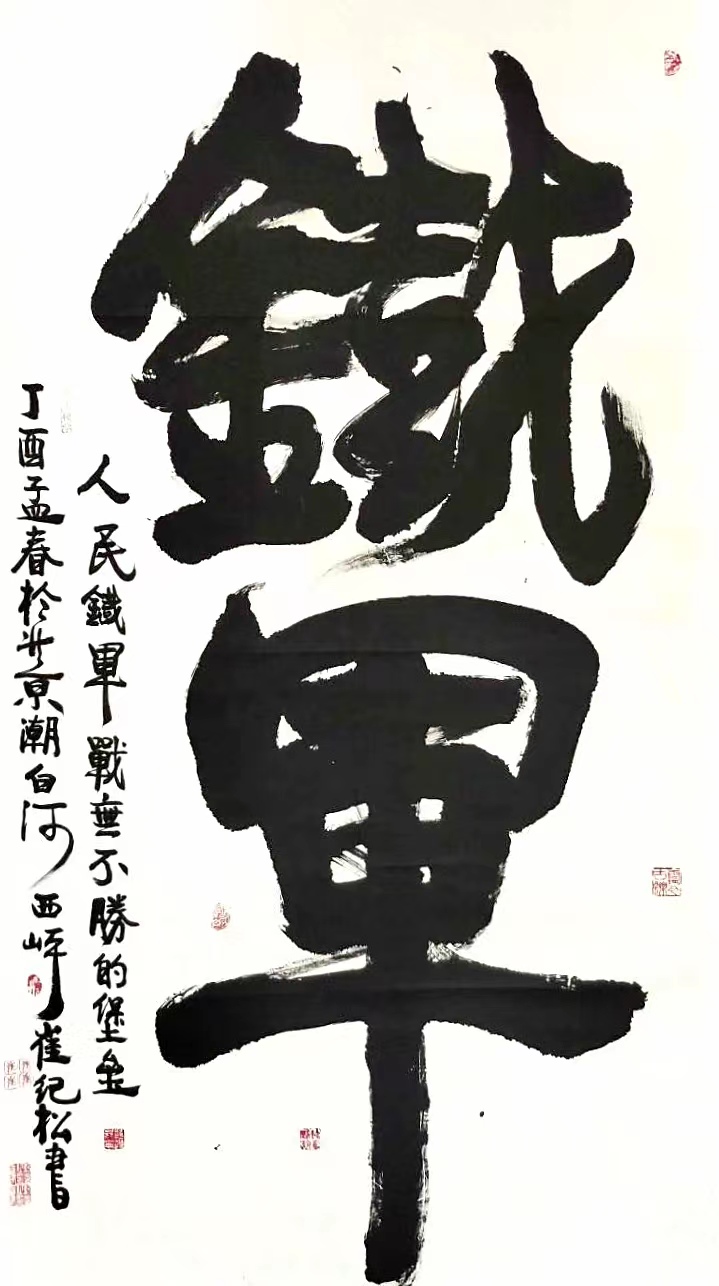 鐵軍
人民鐵軍戰無不勝的堡壘
丁酉孟春於北京潮白河 西峰 崔紀松書